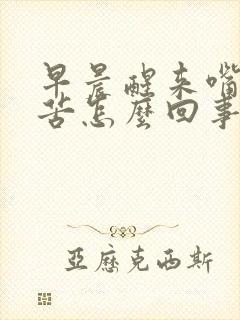 早晨醒来嘴
苦怎麼回事
亞歷克西斯